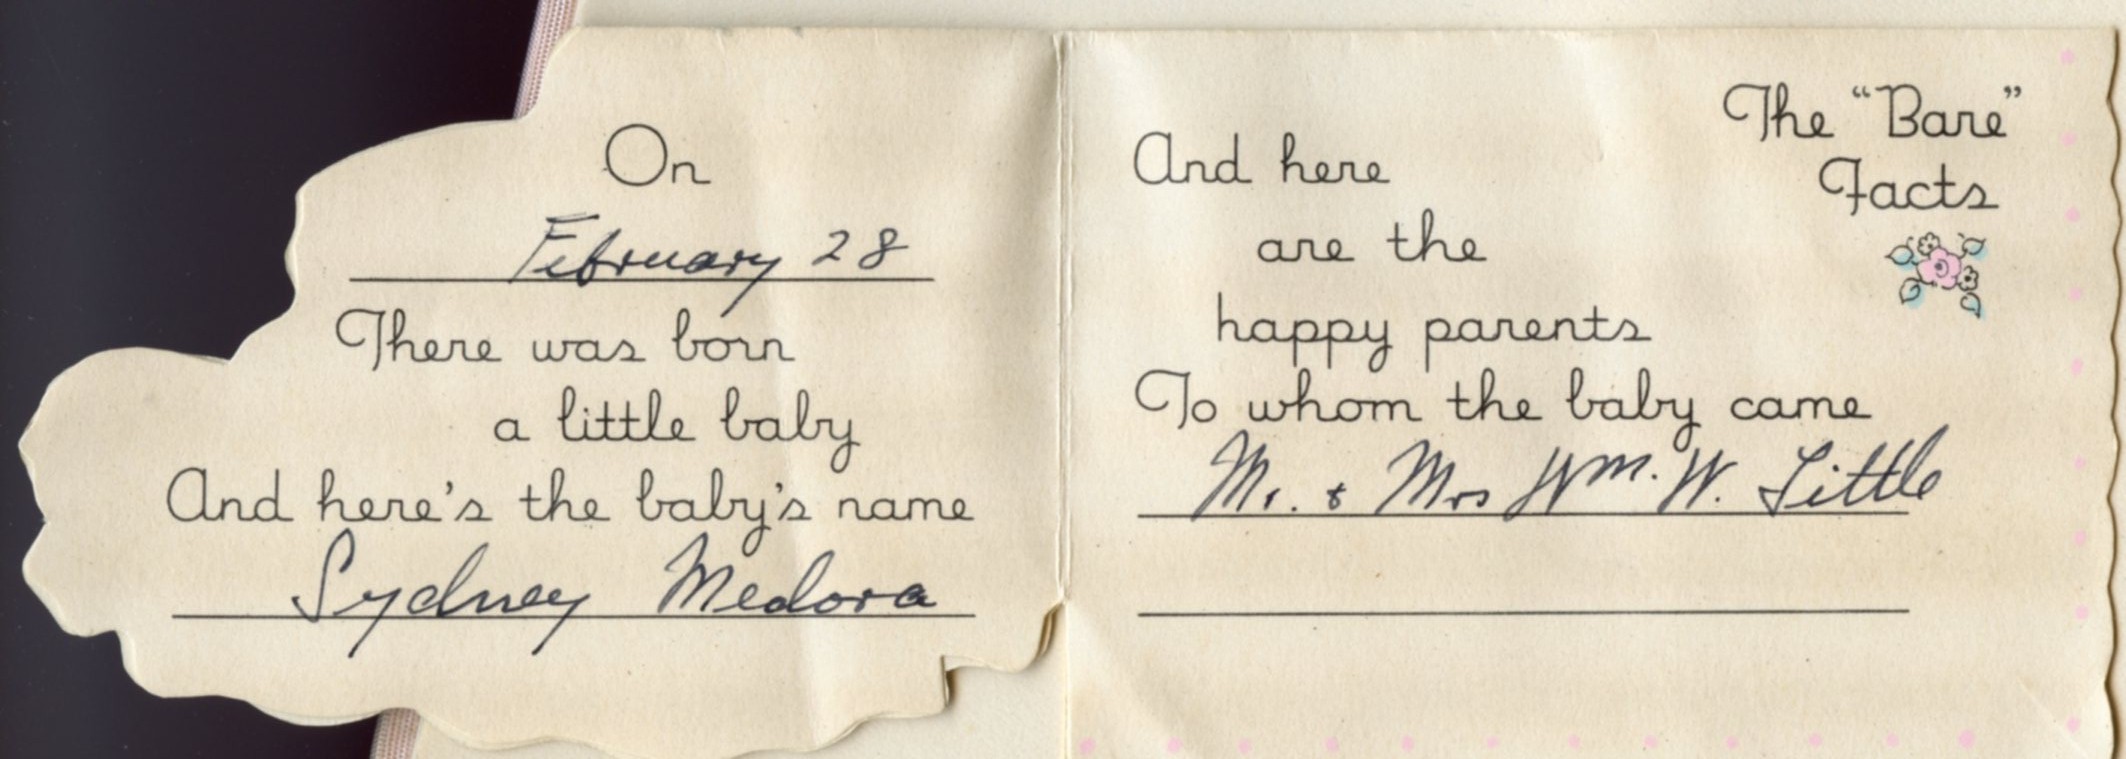 On
February 28
There was born
a little baby
And here's the baby's name
Sydney Medora
The "Bare"
Facts
And here
are the
happy parents
To whom the baby came
Mr. & Mrs Wm. W. Little